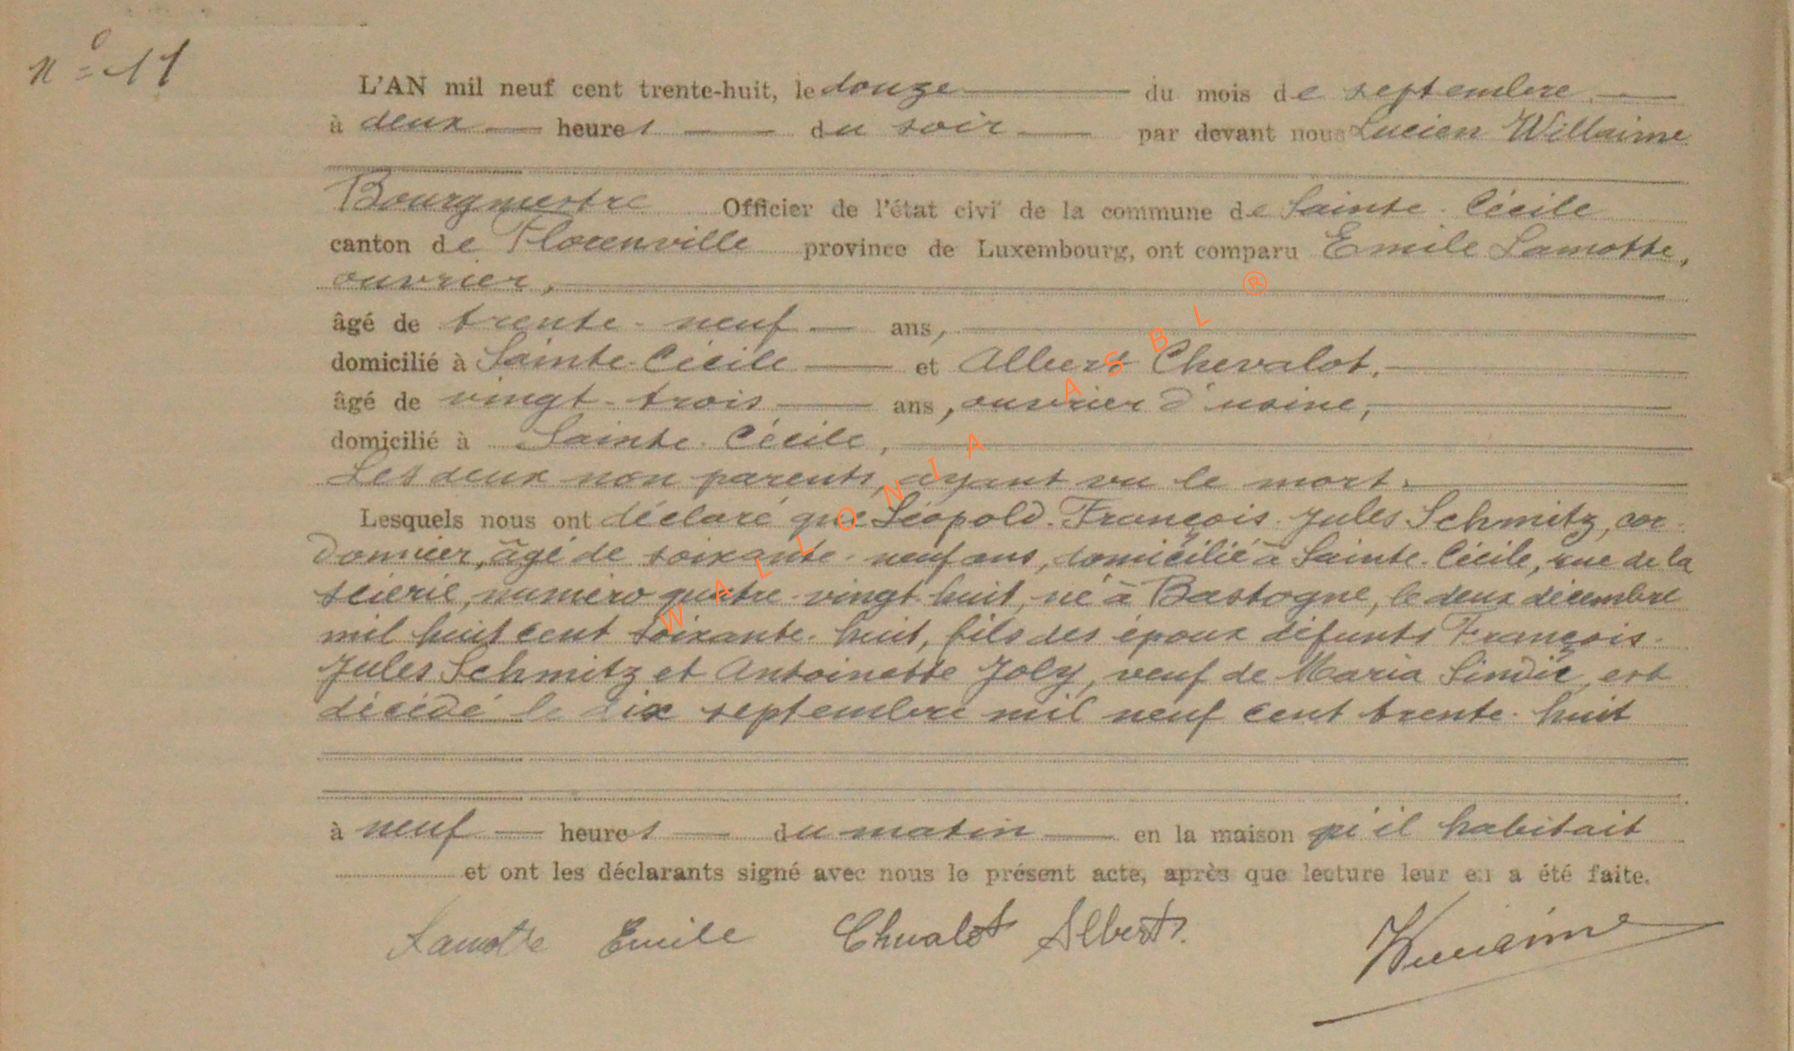 n° 11
L'AN mil neuf cent trente-huit, le douze du mois de septembre
à deux heures du soir par devant nous Lucien Willaime
Bourgmestre Officier de l'état civil de la commune de Sainte-Cécile
canton de Florenville province de Luxembourg, ont comparu Emile Lamotte,
ouvrier,
âgé de trente-neuf ans,
domicilié à Sainte-Cécile et Albert Chevalot,
âgé de vingt-trois ans, ouvrier d'usine,
domicilié à Sainte-Cécile,
Les deux non parents, ayant vu le mort.
Lesquels nous ont déclaré que Léopold-François-Jules Schmitz, cor-
donnier, âgé de soixante-neuf ans, domicilié à Sainte-Cécile, rue de la
scierie, numéro quatre-vingt-huit, né à Bastogne, le deux décembre
mil huit cent soixante-huit, fils des époux défunts François-
Jules Schmitz et Antoinette Joly, veuf de Maria Sindic, est
décédé le dix septembre mil neuf cent trente-huit
à neuf heures du matin en la maison qu'il habitait
et ont les déclarants signé avec nous le présent acte, après que lecture leur en a été faite.
Lamotte Emile Chevalot Albert. Willaime
WALLONIA ASBL ®